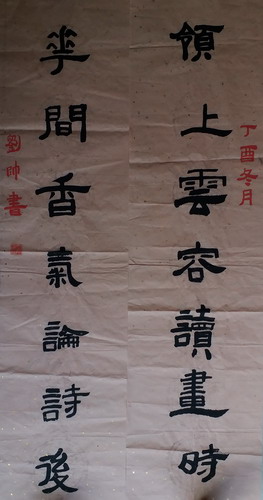 丁酉冬月
領上雲容讀畫時
華間香氣論詩後
劉帥書